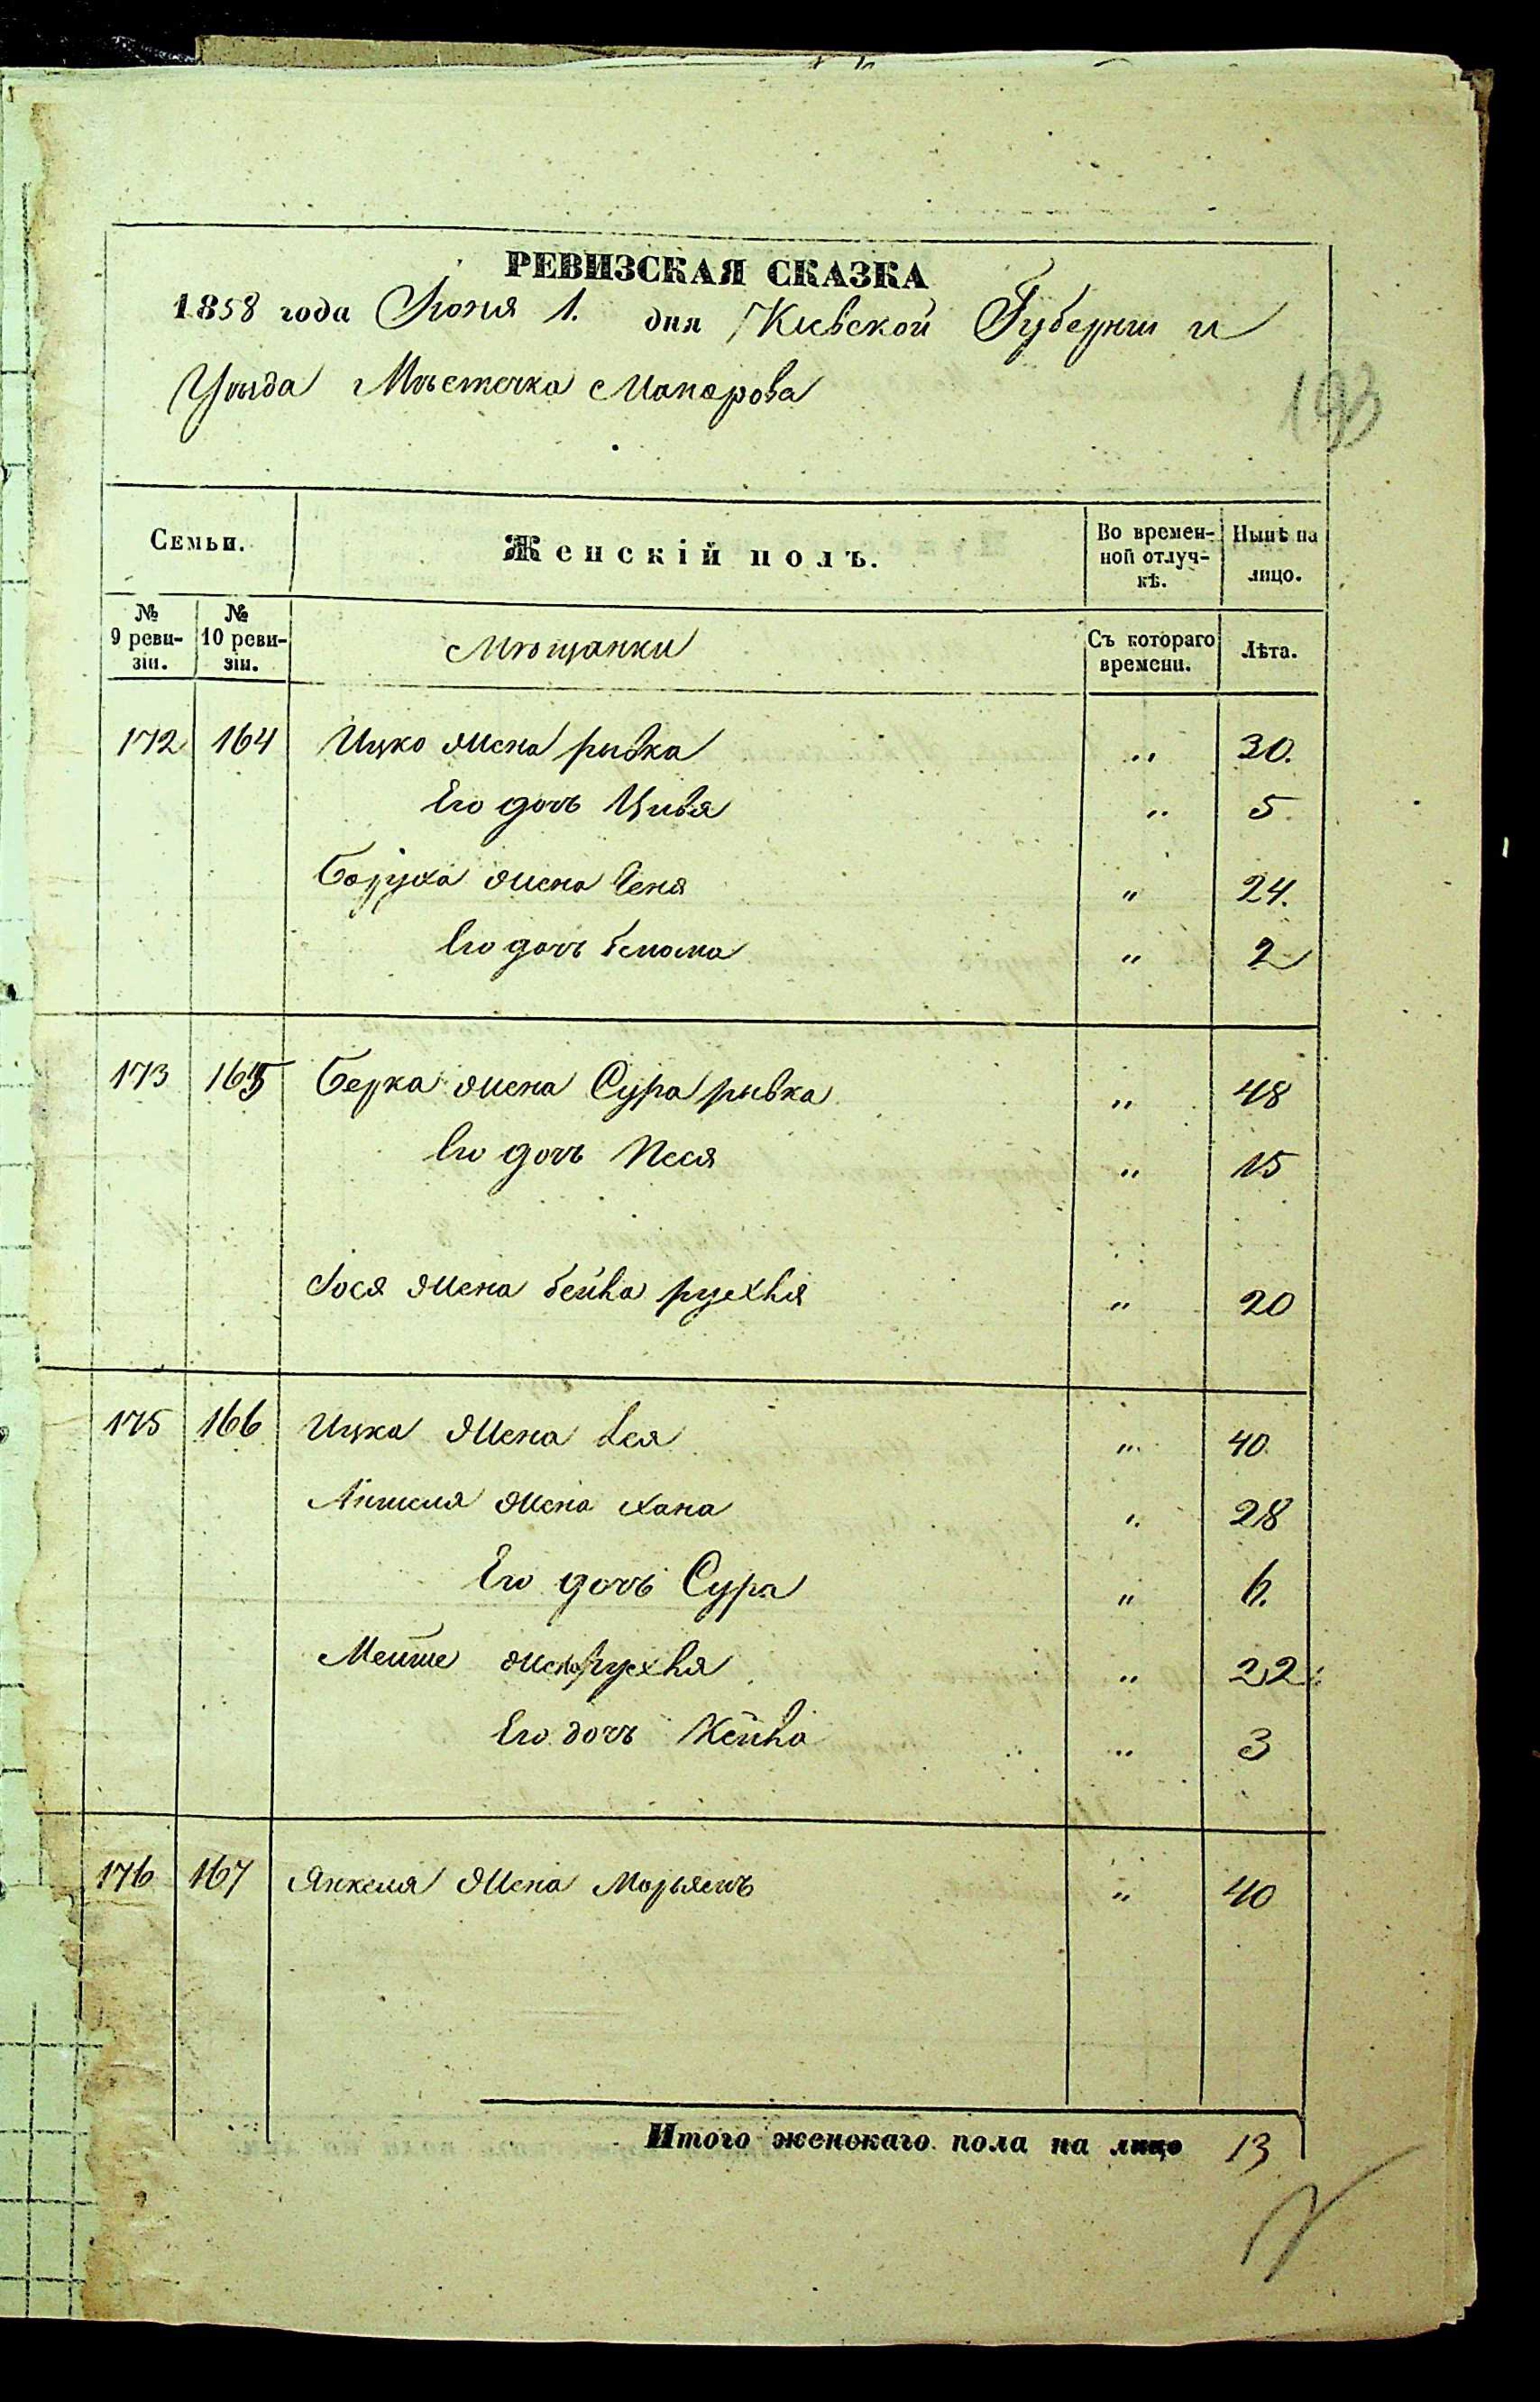 РЕВИЗСКАЯ СКАЗКА
1858 года Іюня 1. дня Кіевской Губерніи и
Уѣзда Мѣстечка Макарова
193
Семьи. Женскій полъ. Во временной отлучкѣ. Нынѣ на лицо.
№ 9 ревизіи. № 10 ревизіи. Мѣщанки Съ котораго времени. Лѣта.
172 164 Ицко жена ривка " 30.
Его дочь Цивя " 5
Боруха жена Геня " 24.
Его дочь " 2
173 165 Берка жена Сура рывка " 48
Его дочь Песя " 15
Іося жена бейла рухля " 20
175 166 Ицка жена Лея " 40
Аншеля жена хана " 28
Его дочь Сура " 6.
жена рухля " 22
Его дочь Кейла " 3
176 167 Янкеля жена Марьямъ " 40
Итого женскаго пола на лицо 13